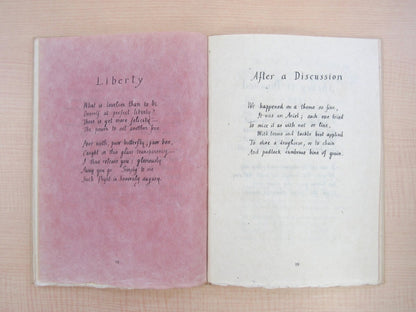 Liberty
What is lovelier than to be
Oneself at perfect liberty?
There is yet more felicity—
The power to set another free.
Fare well, poor butterfly, poor bee,
Caught in this glass transparency—
I thus release you; gloriously
Away you go. Simply to me
Such flight is heavenly
After a Discussion
We happened on a theme so fine,
It was an Ariel; each one tried
To seize it as with net or line,
With terms and tackle best applied
To shoe a drayhorse, or to chain
And padlock cumbrous bins of grain.